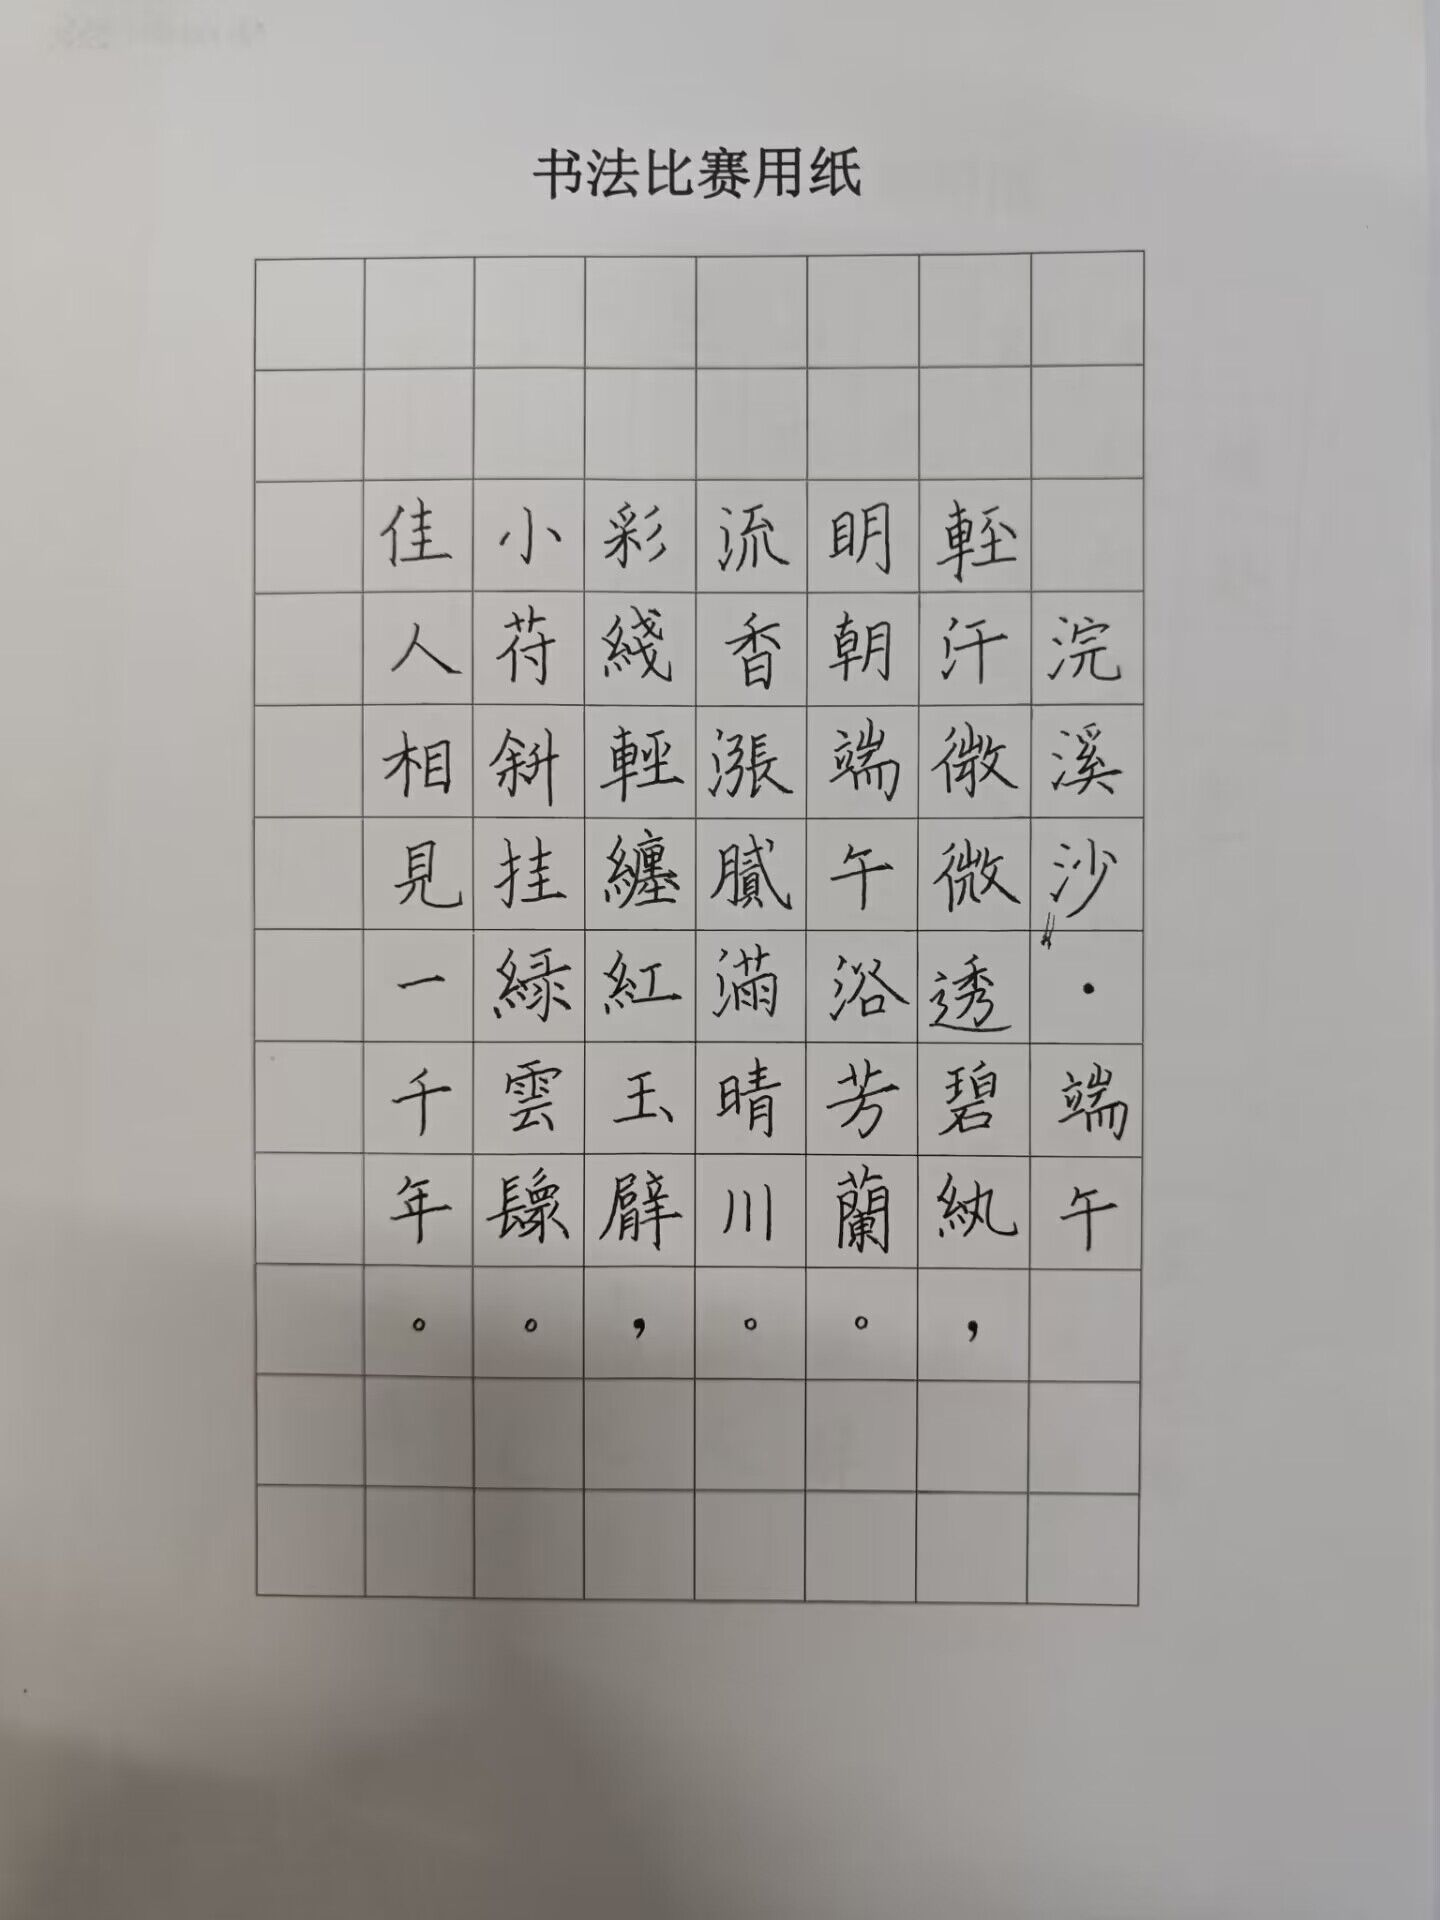 书法比赛用纸
浣溪沙·端午
輕汗微微透碧紈，
明朝端午浴芳蘭。
流香漲膩滿晴川。
彩綫輕纏紅玉臂，
小符斜挂綠雲鬟。
佳人相見一千年。